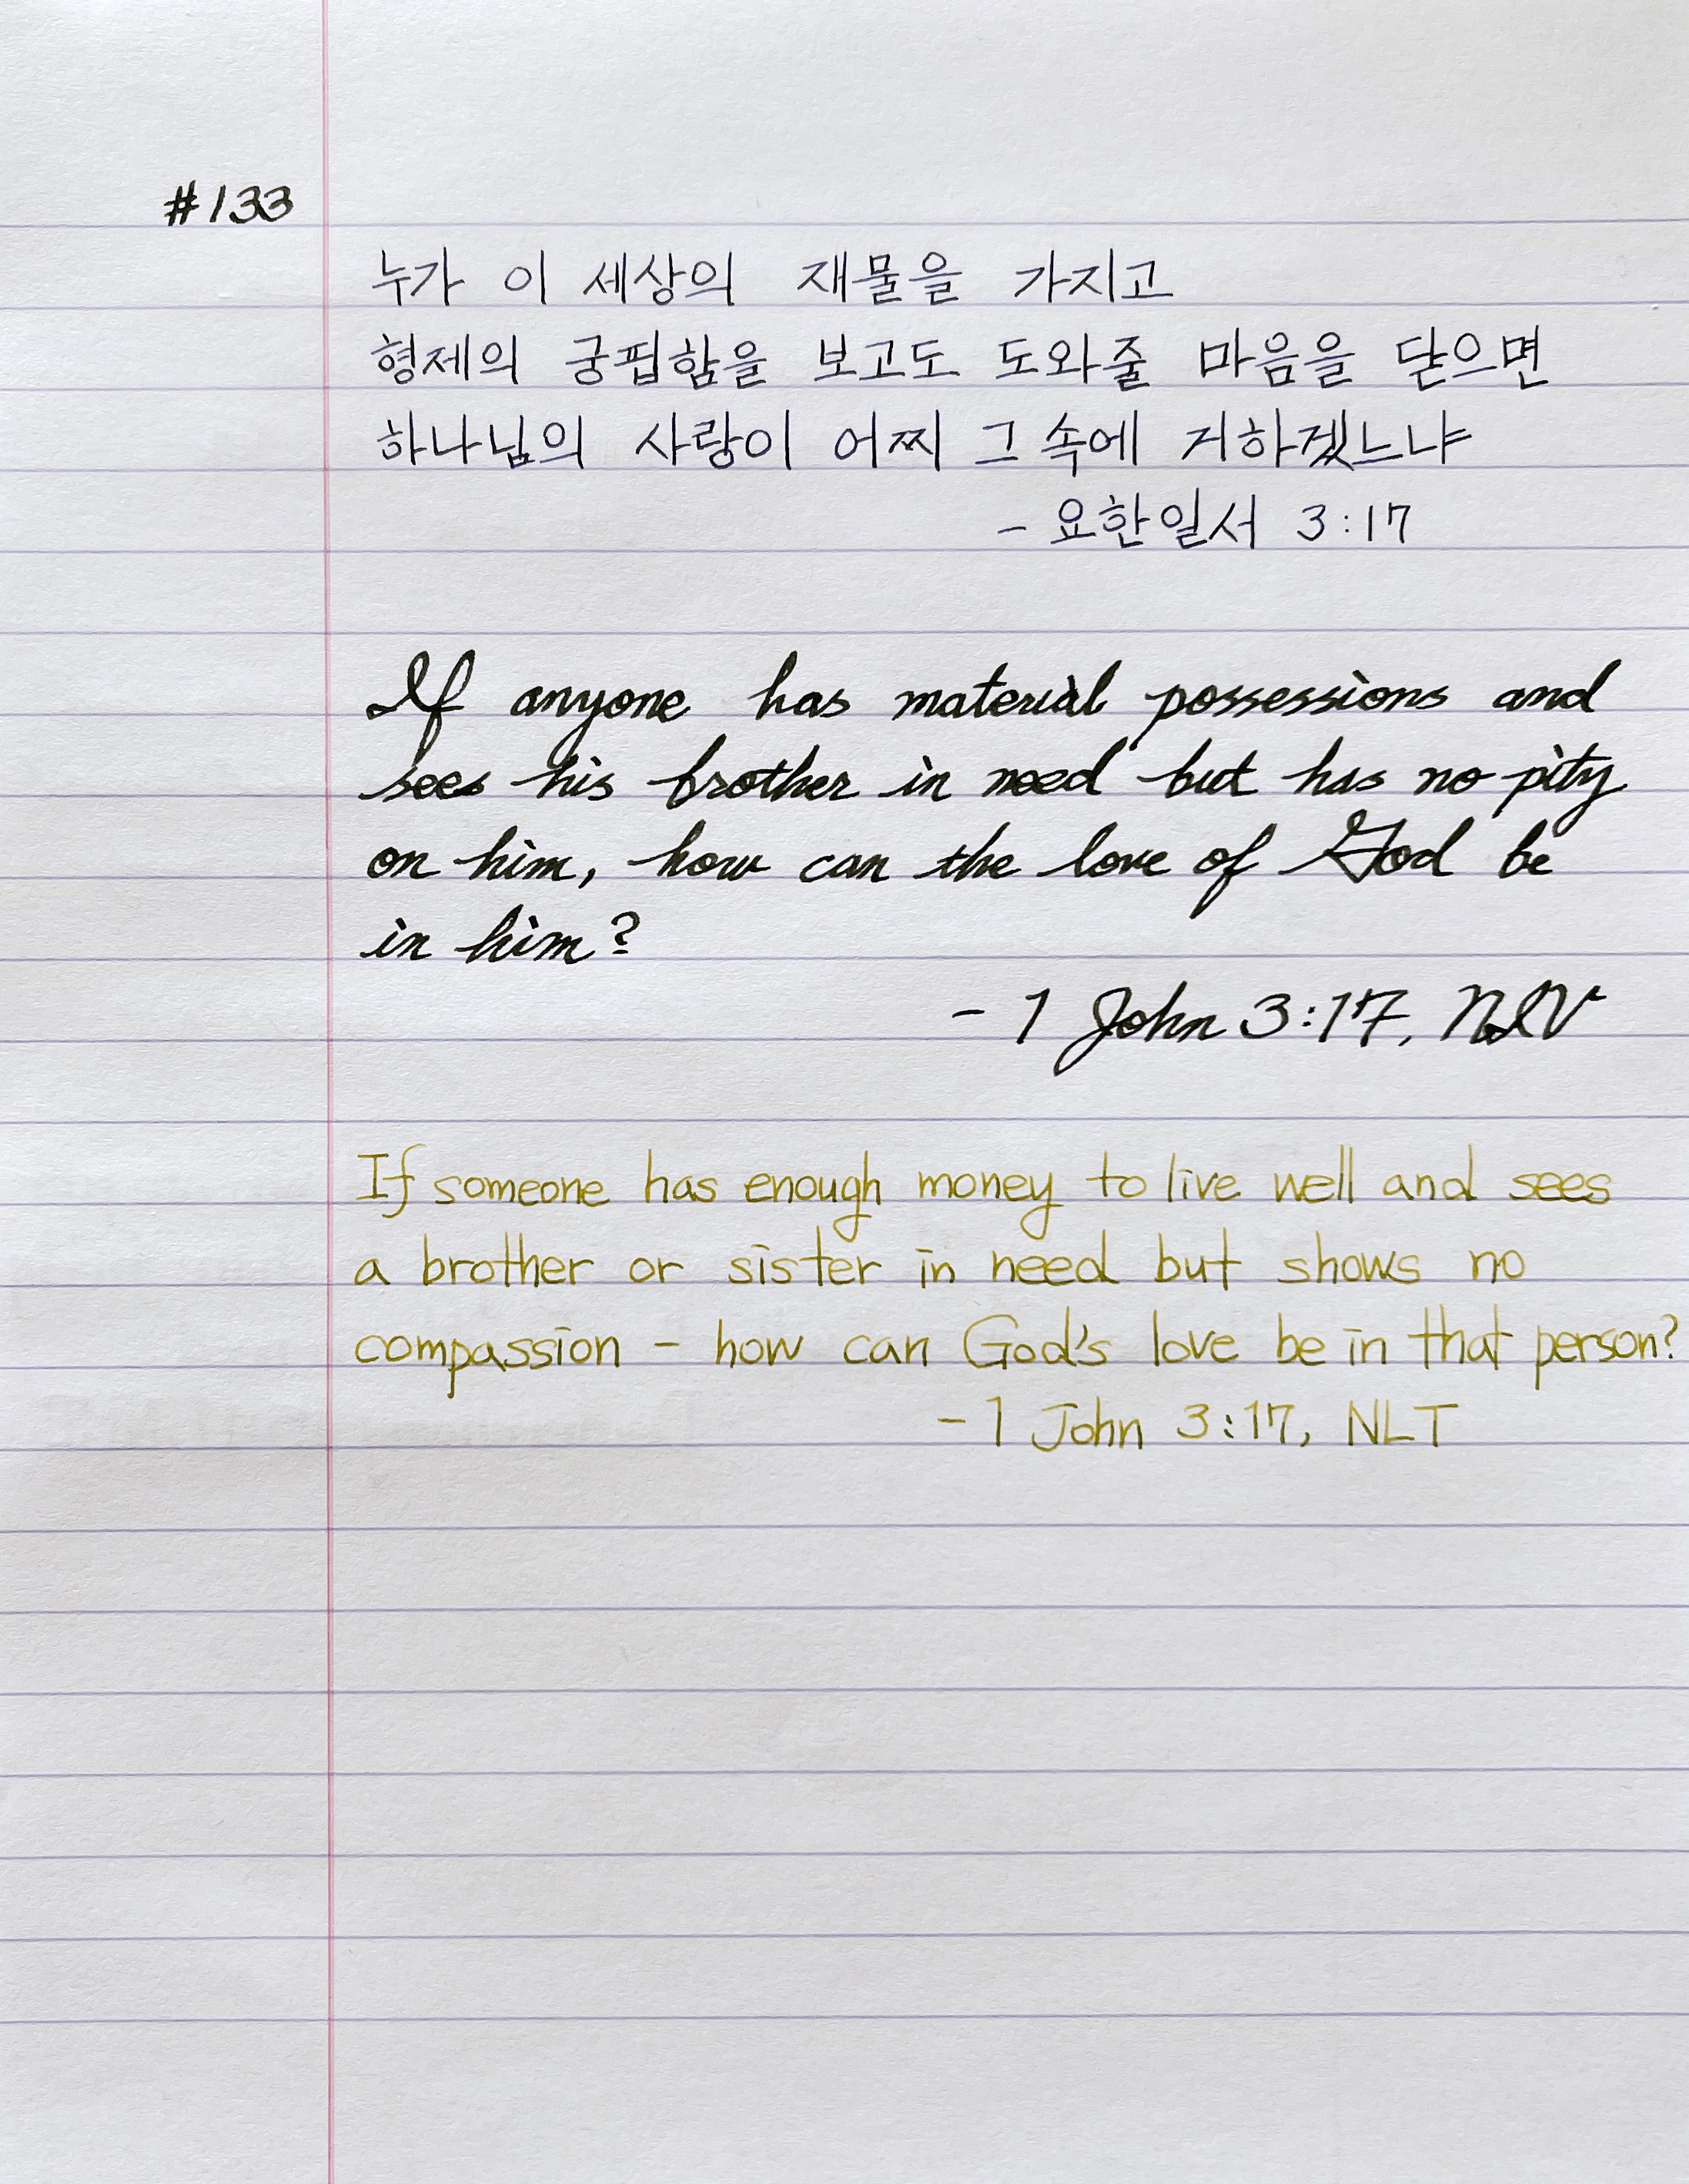 #133
누가 이 세상의 재물을 가지고
형제의 궁핍함을 보고도 도와줄 마음을 닫으면
하나님의 사랑이 어찌 그 속에 거하겠느냐
- 요한일서 3:17
If anyone has material possessions and
sees his brother in need but has no pity
on him, how can the love of God be
in him?
- 1 John 3:17, NIV
If someone has enough money to live well and sees
a brother or sister in need but shows no
compassion - how can God's love be in that person?
- 1 John 3:17, NLT